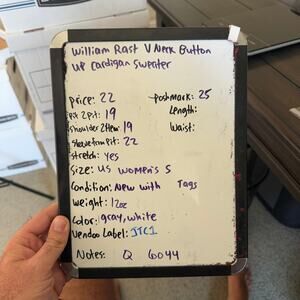 William Rast V Neck Button
up cardigan sweater
Price: 22 Poshmark: 25
Pit 2 Pit: 19 Length:
Shoulder 2 Hem 19 Waist:
Sleeve from Pit: 22
stretch: yes
Size: US women's S
Condition: New with Tags
Weight: 12oz
Color: gray, white
Vendoo Label: JTC1
Notes: Q 6044